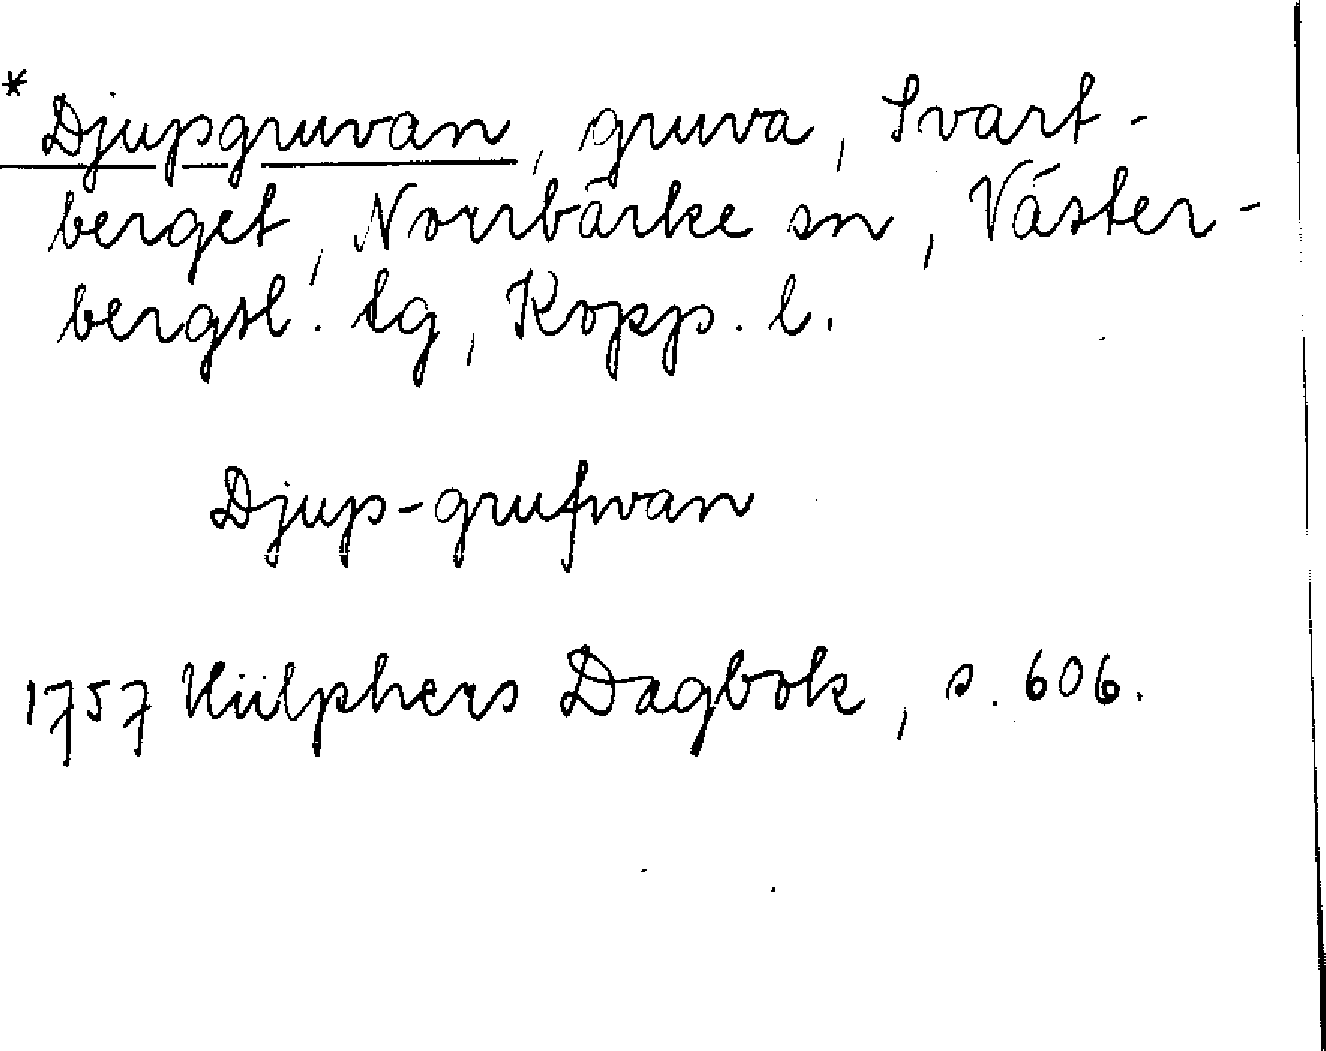 * Djupgruvan, gruva, Svart-
berget, Norrbärke sn, Väster-
bergsl. tg, Kopp. l.
Djup-grufwan
1757 Hülphers Dagbok, s. 606.